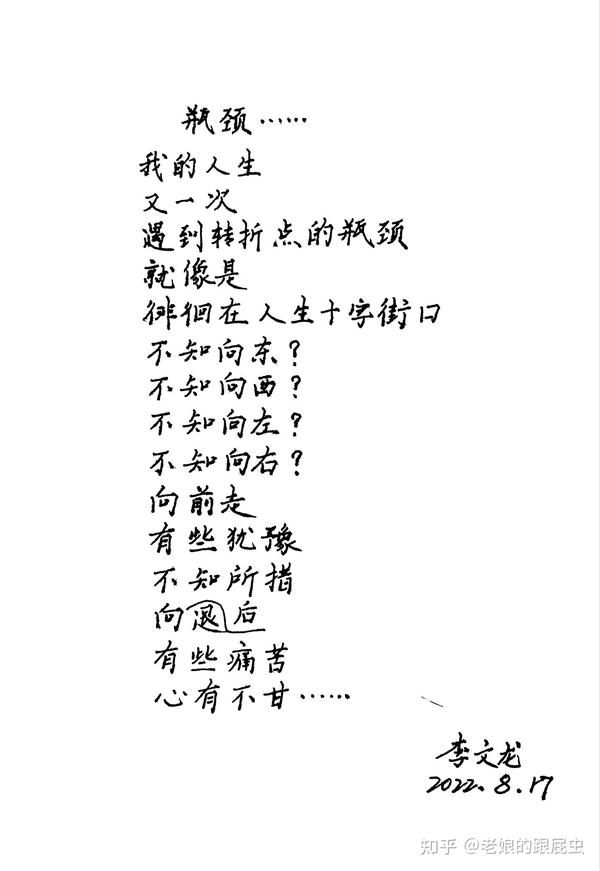 瓶颈……
我的人生
又一次
遇到转折点的瓶颈
就像是
徘徊在人生十字街口
不知向东？
不知向西？
不知向左？
不知向右？
向前走
有些犹豫
不知所措
向退后
有些痛苦
心有不甘……
李文龙
2022.8.17
知乎 @老娘的跟屁虫